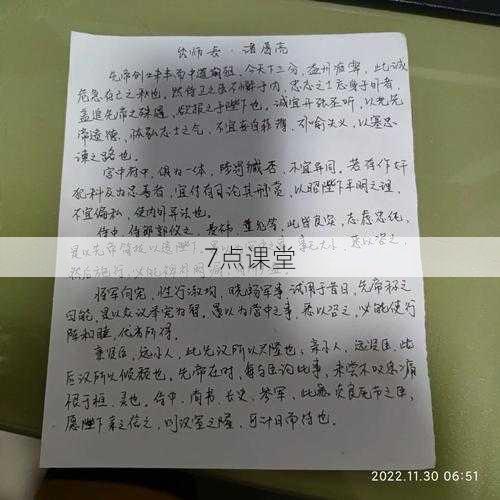 出师表·诸葛亮
先帝创业未半而中道崩殂，今天下三分，益州疲弊，此诚
危急存亡之秋也。然侍卫之臣不懈于内，忠志之士忘身于外者，
盖追先帝之殊遇，欲报之于陛下也。诚宜开张圣听，以光先
帝遗德，恢弘志士之气，不宜妄自菲薄，引喻失义，以塞忠
谏之路也。
宫中府中，俱为一体，陟罚臧否，不宜异同。若有作奸
犯科及为忠善者，宜付有司论其刑赏，以昭陛下平明之理，
不宜偏私，使内外异法也。
侍中、侍郎郭攸之、费祎、董允等，此皆良实，志虑忠纯，
是以先帝简拔以遗陛下
7点课堂
将军向宠，性行淑均，晓畅军事，试用于昔日，先帝称之
曰能，是以众议举宠为督。愚以为营中之事，悉以咨之，必能使行
阵和睦，优劣所得。
亲贤臣，远小人，此先汉所以兴隆也；亲小人，远贤臣，此
后汉所以倾颓也。先帝在时，每与臣论此事，未尝不叹息痛
恨于桓、灵也。侍中、尚书、长史、参军，此悉贞良死节之臣，
愿陛下亲之信之，则汉室之隆，可计日而待也。
2022.11.30 06:51